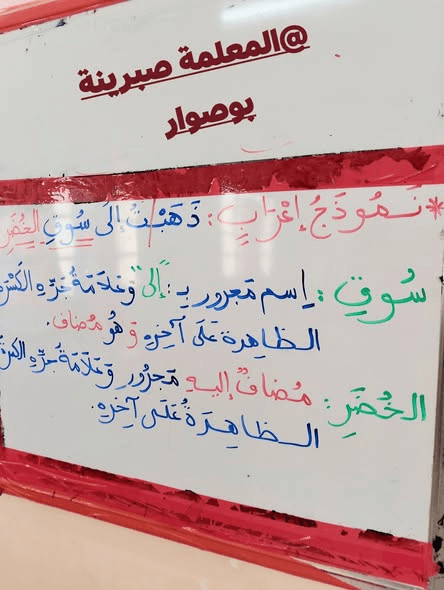 @المعلمة صبرينة
بوصوار
*نَموذَجُ إعْرَابٍ: ذَهَبْتُ إلَى سُوقِ الخُضَرِ
سُوقِ: اِسم مَجرور بـ: "إلى" وَعَلاَمَةُ جَرِّهِ الكَسْرَة
الظاهِرة عَلَى آخِرِهِ وَهُوَ مُضاف.
الخُضَرِ: مُضافٌ إليهِ مَجْرُور وَعَلاَمَةُ جَرِّهِ الكسرَةُ
الظاهِرَةُ عَلَى آخِرِهِ.